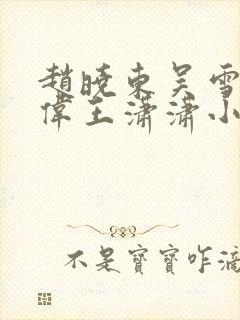 趙曉東吴雪
偉王瀟瀟小
不是寶寶咋滴